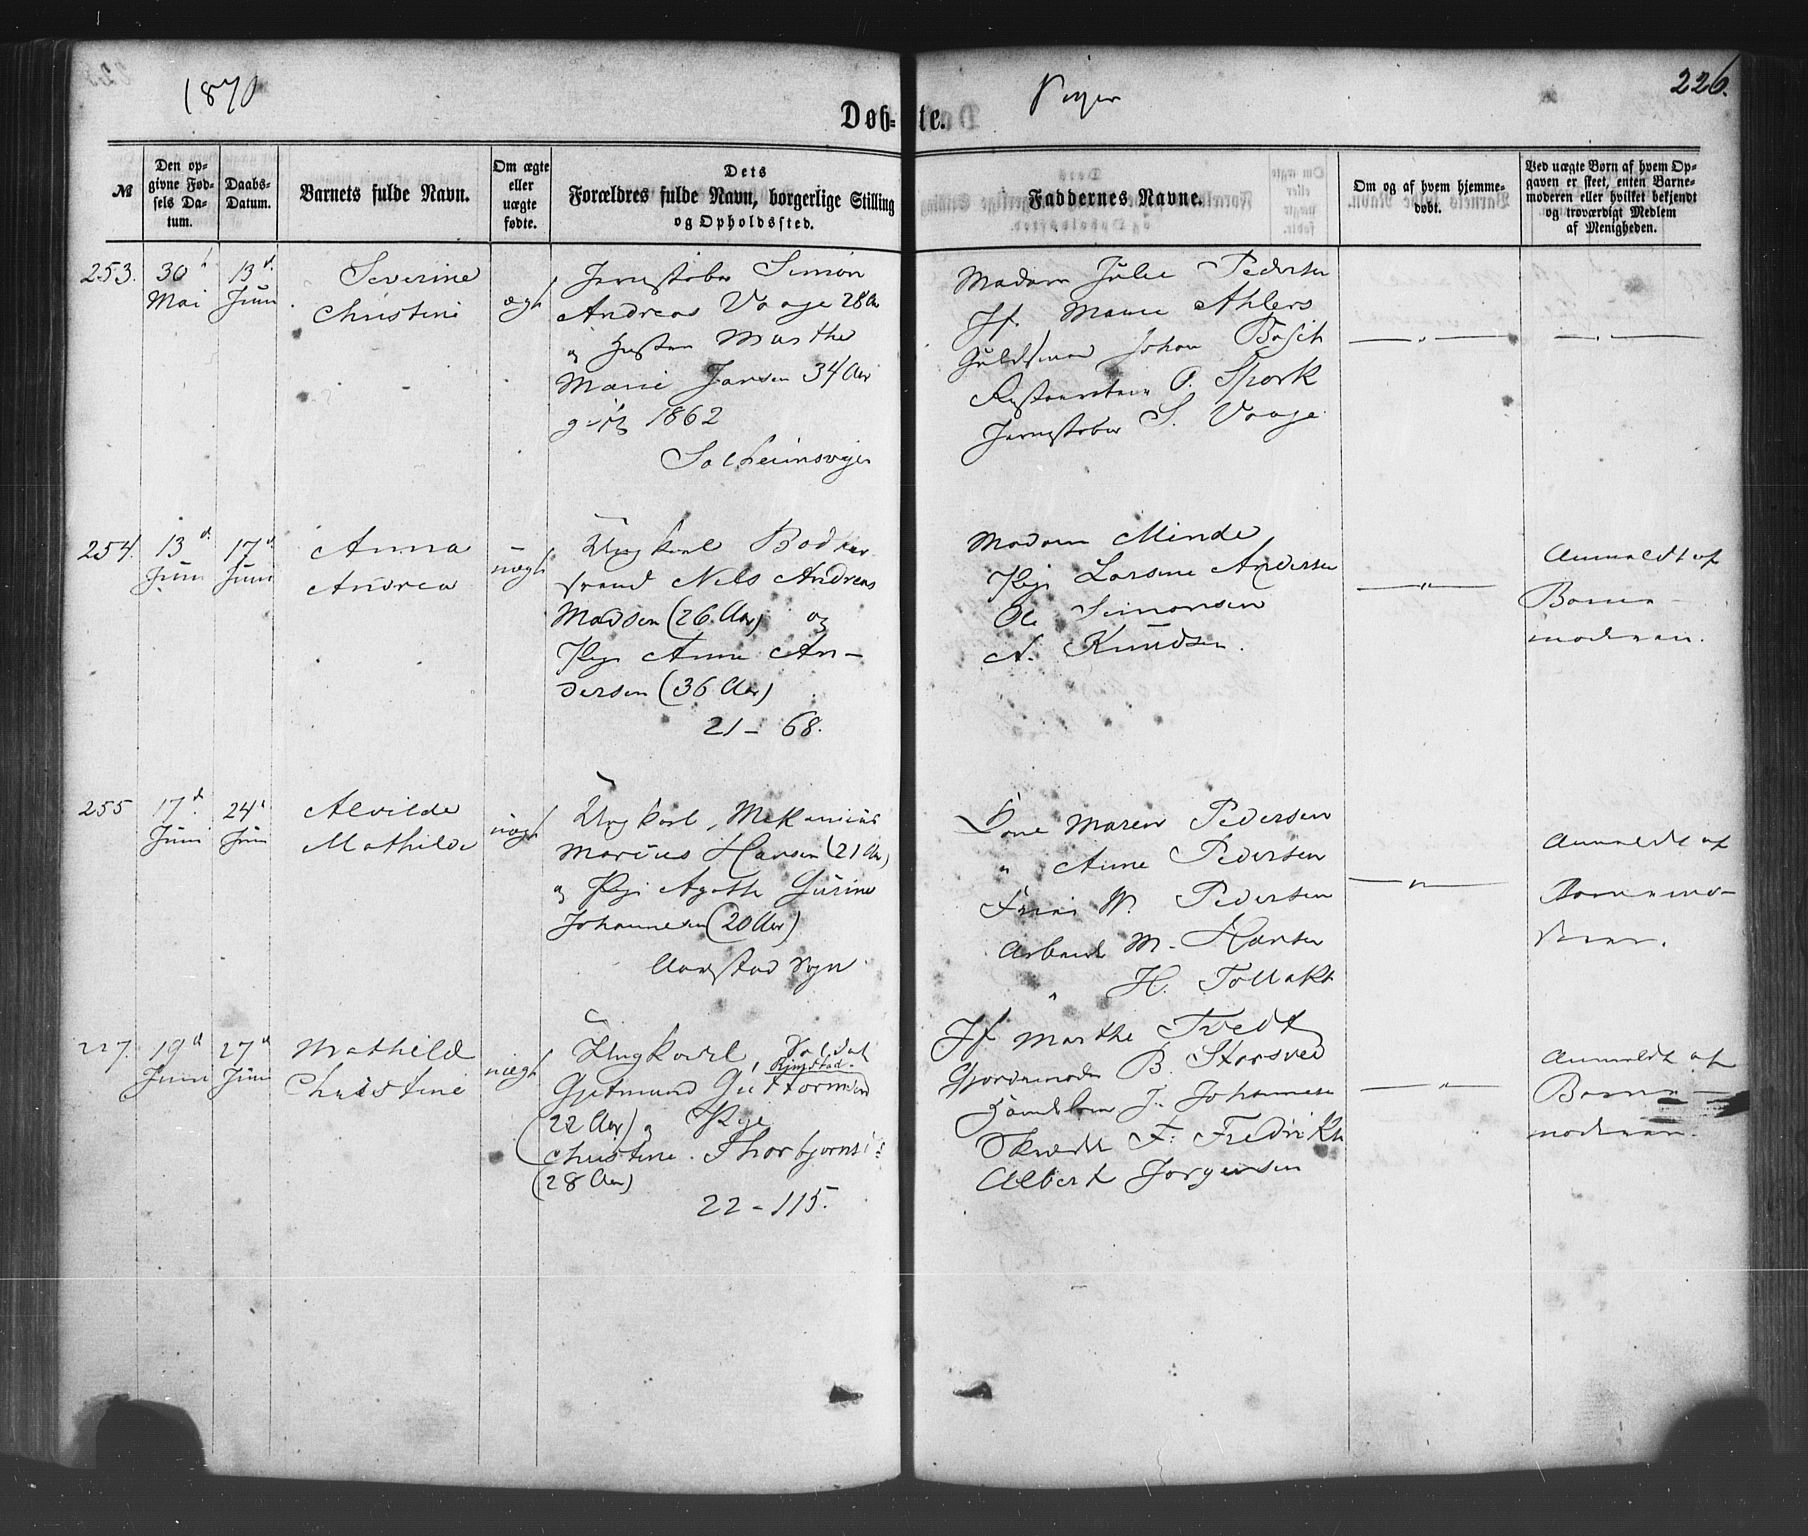 1870
Piger
226.
Døbte.
№
Den opgivne Fødsels Datum.
Daabs-Datum.
Barnets fulde Navn.
Om ægte eller uægte fødte.
Dets Forældres fulde Navn, borgerlige Stilling og Opholdssted.
Faddernes Navne.
Om og af hvem hjemmedøbt.
Ved uægte Børn af hvem Opgaven er skeet, enten Barnemoderen eller hvilket bekjendt og troværdigt Medlem af Menigheden.
253.
30 Mai
13d. Juni
Severine
Christine
ægt
Jernstøber Simon
Andreas Vaage 28 Aar
og Hustru Marthe
Marie Jansen 34 Aar
gift 1862
Solheimsvigen
Madam Julie Pedersen
Jf. Marie Ahlers
Guldsmed Johan Bøsch
P. Spork
Jernstøber S. Vaage
254.
13d. Juni
17d. Juni
Anna
Andrea
uægt
Ungkarl Bødkersvend Nels Andreas
Madsen (26 Aar) og
Pige Anne Andersen (36 Aar)
21 - 68.
Madam Minde
Pige Larsine Andersen
O. Simonsen
N. Knudsen.
Anmeldt af
Barnemoderen.
255
17d. Juni
24d Juni
Alvilde
Mathilde
uægt
Ungkarl, Mekanicus
Marius Hansen (21 Aar)
og Pige Agathe Gurine
Johannesen (20 Aar)
Aarstad Sogn
Kone Maren Pedersen
" Anne Pedersen
W. Pedersen
Arbeid. M. Hansen
" H. Tollaks
Anmeldt af
Barnemoderen.
227.
19d Juni
27d Juni
Mathilde
Christine
uægt
Ungkarl, Soldat
Gjetmund Guttormsen
(22 Aar) og Pige
Christine Thorbjørns
(28 Aar)
22 - 115.
Jf Marthe Tvedt
Gjordemoder B. Storsved
J. Johannesen
Skrædd. F. Fredriks
Albert Jørgensen
Anmeldt af
Barnemoderen.